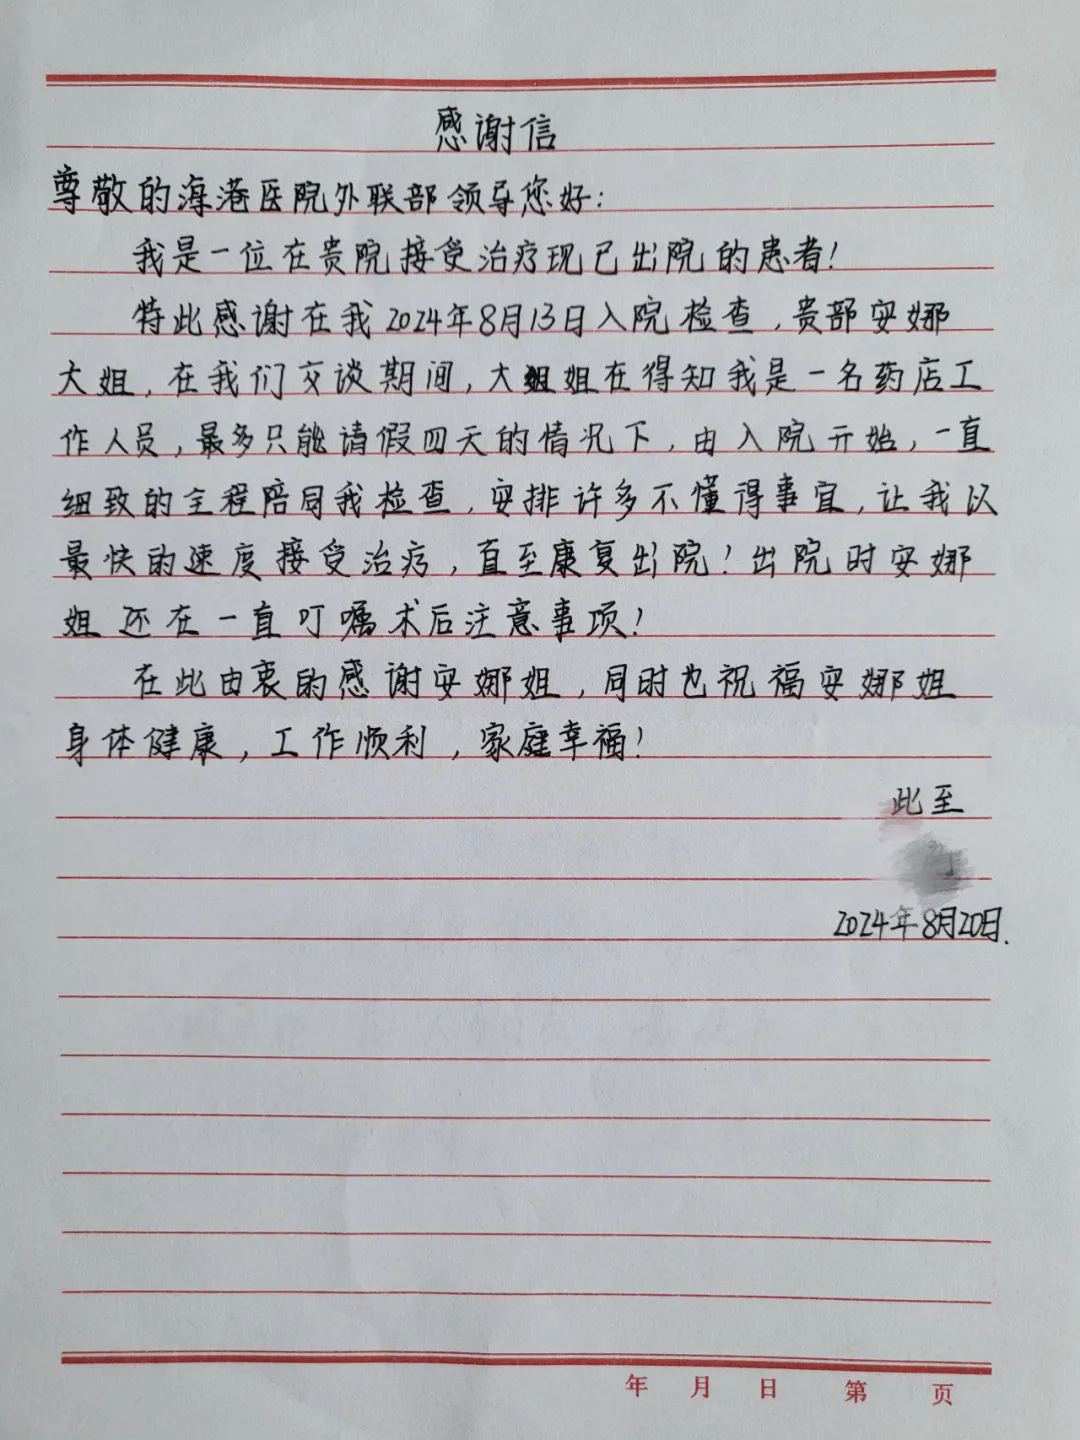 感谢信
尊敬的海港医院外联部领导您好：
我是一位在贵院接受治疗现已出院的患者！
特此感谢在我2024年8月13日入院检查，贵部安娜
大姐，在我们交谈期间，大姐在得知我是一名药店工
作人员，最多只能请假四天的情况下，由入院开始，一直
细致的全程陪同我检查，安排许多不懂得事宜，让我以
最快的速度接受治疗，直至康复出院！出院时安娜
姐还在一直叮嘱术后注意事项！
在此由衷的感谢安娜姐，同时也祝福安娜姐
身体健康，工作顺利，家庭幸福！
此至
2024年8月20日.
年 月 日 第 页